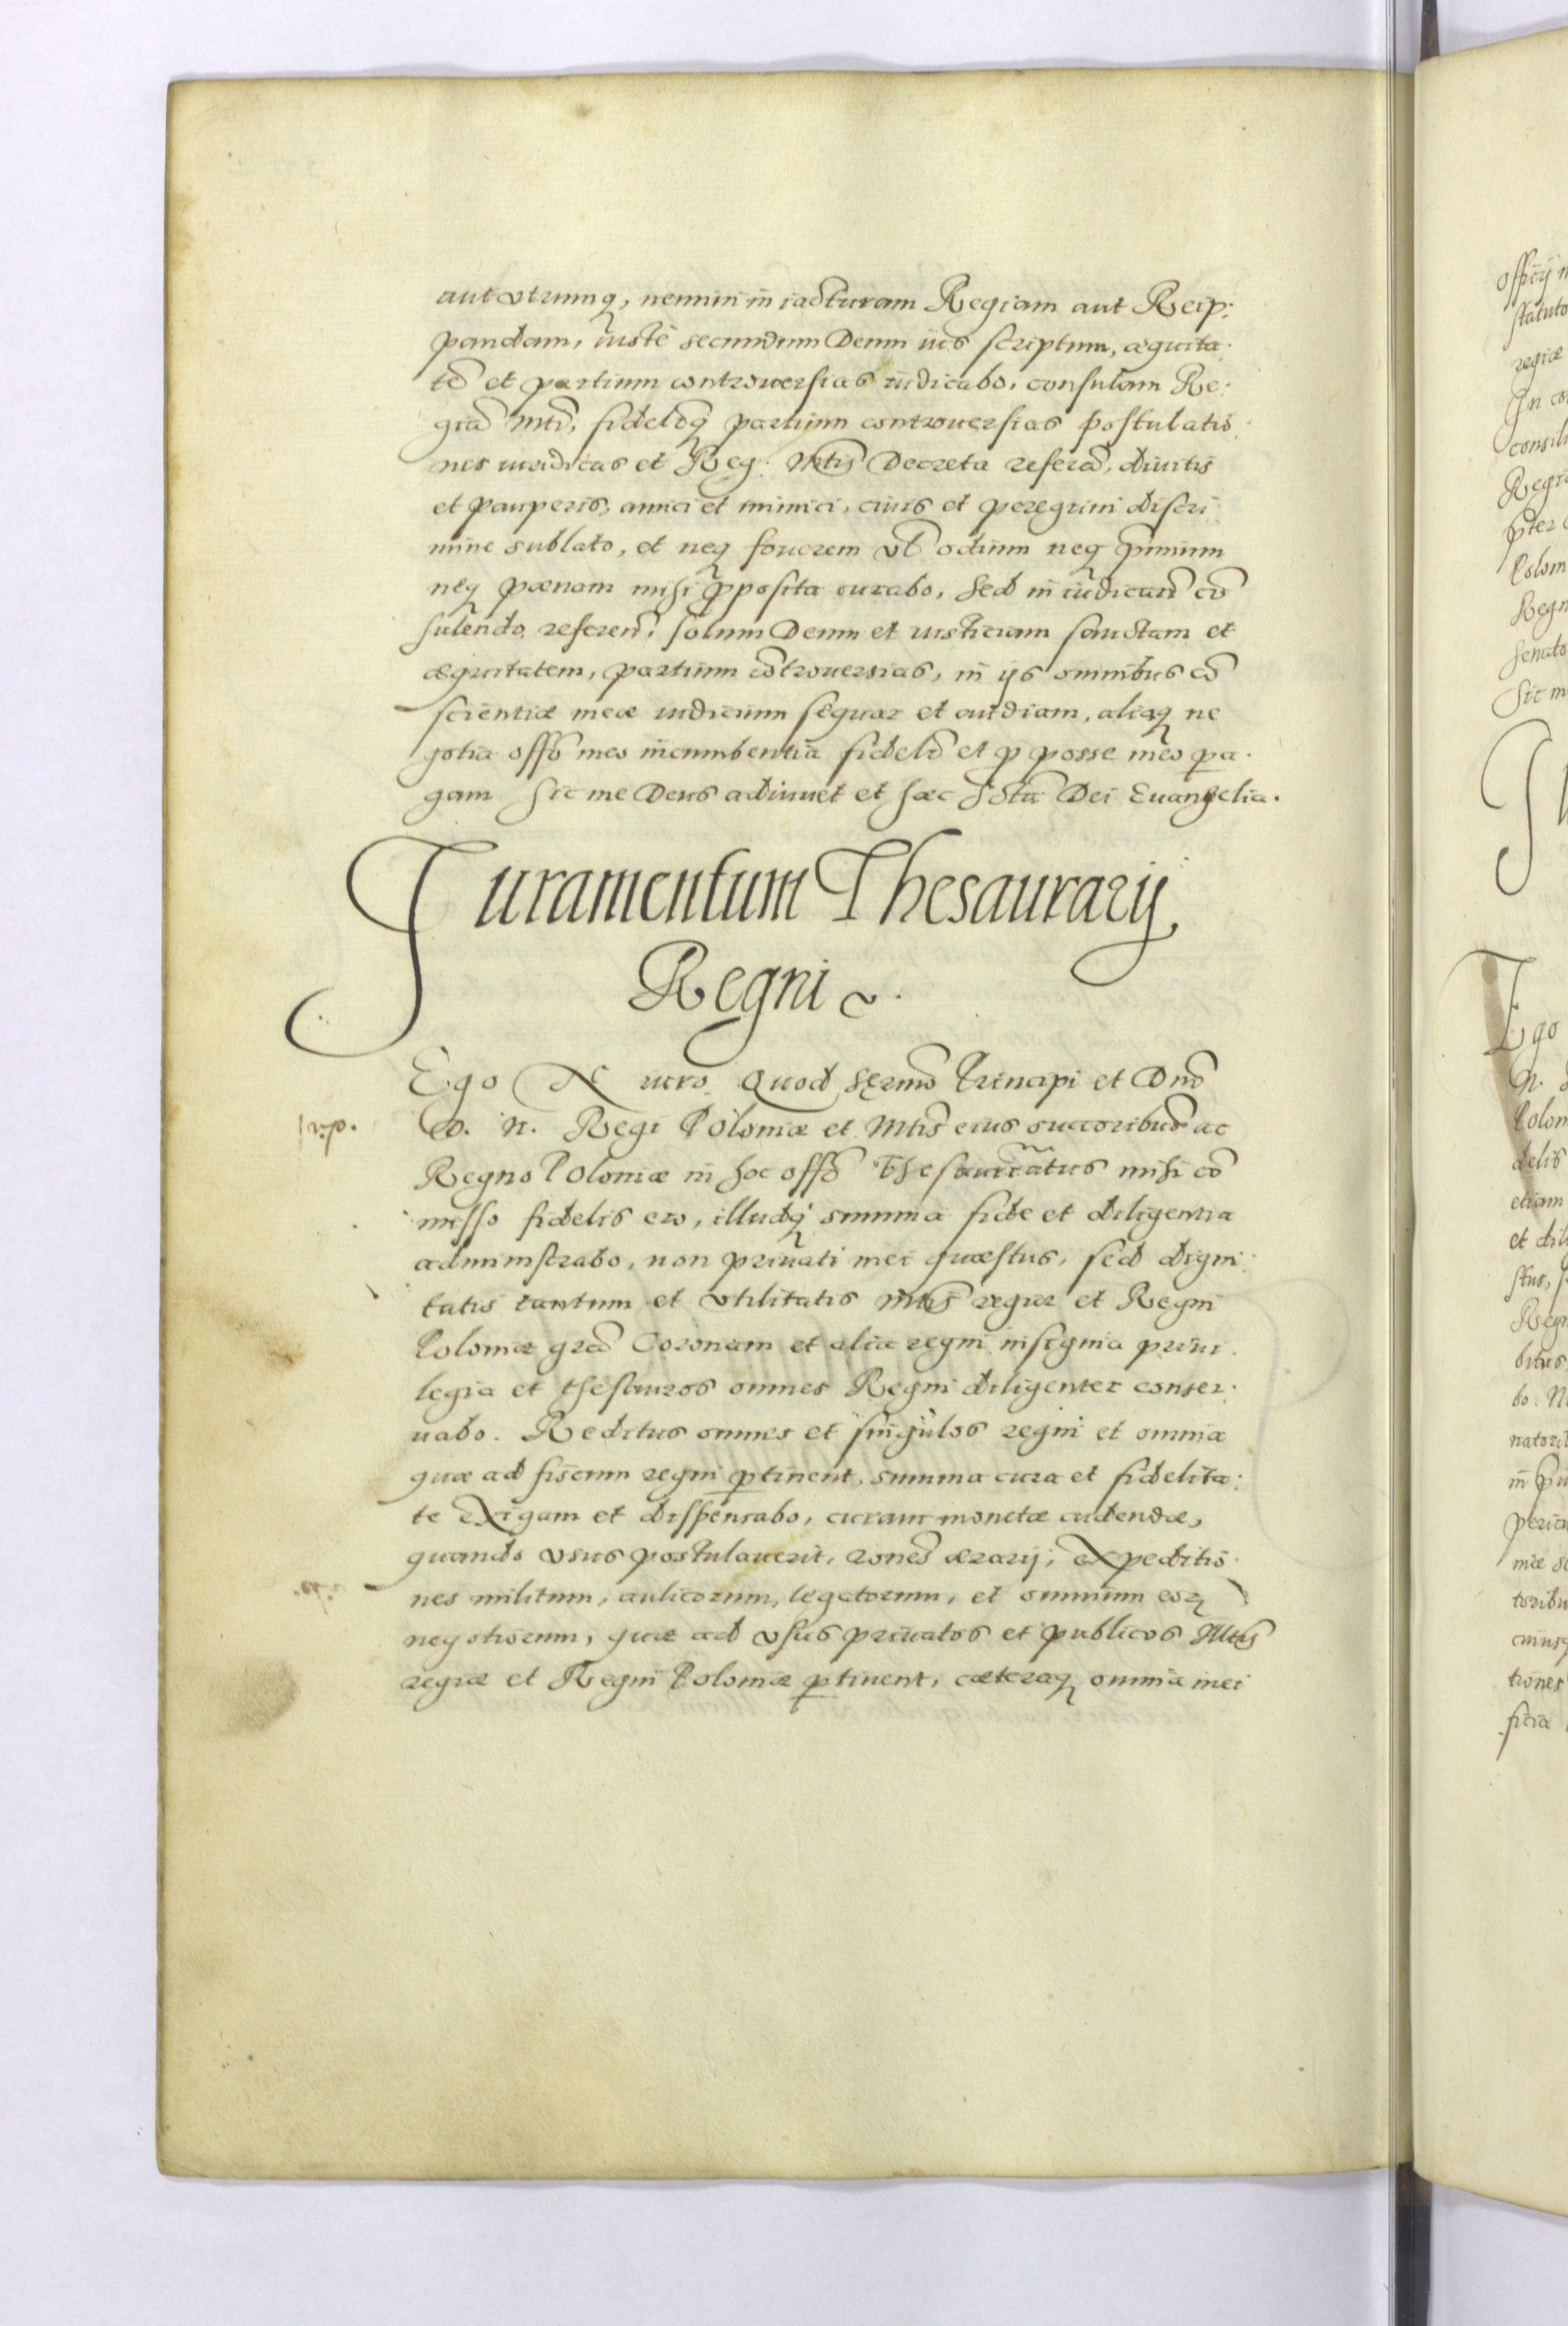 aut vtrumq, nemini in iacturam Regiam aut Reip:
pandam, iustè secundum Deum ius scriptum, æquita-
tē et partium controuersias iudicabo, consulam Re-
giā Mtī, fidelitq partium controuersias postulatio-
nes iuridicas et Reg: Mtis Decreta referā, diuitis
et pauperis, amici et inimici, ciuis et peregrini discri-
mine sublato, et neq fouorem vl odium neq pmium
neq pœnam mihi pposita curabo, sed in iudicand cō
sulendo referen, solum Deum et iusticiam sanctam et
æquitatem, partium cōtrouersias, in ijs omnibus cō
scientiæ meæ iudicium sequar et audiam, aliaq ne
gotia offo meo incumbentia fidelr et p posse meo pa-
gam Sic me Deus adiuuet et hæc scta Dei Euangelia.
Juramentum Thesaurarij
Regni
Ego N iuro Quod Sermo Principi et Dno
D. N. Regi Poloniæ et Mtis eius succoribus ac
Regno Poloniæ in hoc offo Thesaurratus mihi cō
misso fidelis ero, illudq summa fide et diligentia
administrabo, non priuati mei quæstus, sed digni-
tatis tantum et vtilitatis Mtis regiæ et Regni
Poloniæ grā Coronam et alia regni insignia priui-
legia et thesauros omnes Regni diligenter conser-
uabo. Reditus omnes et singulos regni et omnia
quæ ad fiscum regni ptinent, summa cura et fidelita-
te exigam et dispensabo, curam monetæ cudendæ,
quando vsus postulauerit, rones ærarij, expeditio-
nes militum, aulicorum, legatorum, et omnium eorz
negotiorum, quæ ad vsus priuatos et publicos Mtis
regiæ et Regni Poloniæ ptinent, cæteraq omnia mei
officij
statuto
regiæ
In
Regi
Polon
Regn
Senato
Sic m
Ego
N.
Polon
delis
etiam
et dil
stus,
Regn
bitus
bo. N
natorib
in
peric
toribu
tiones